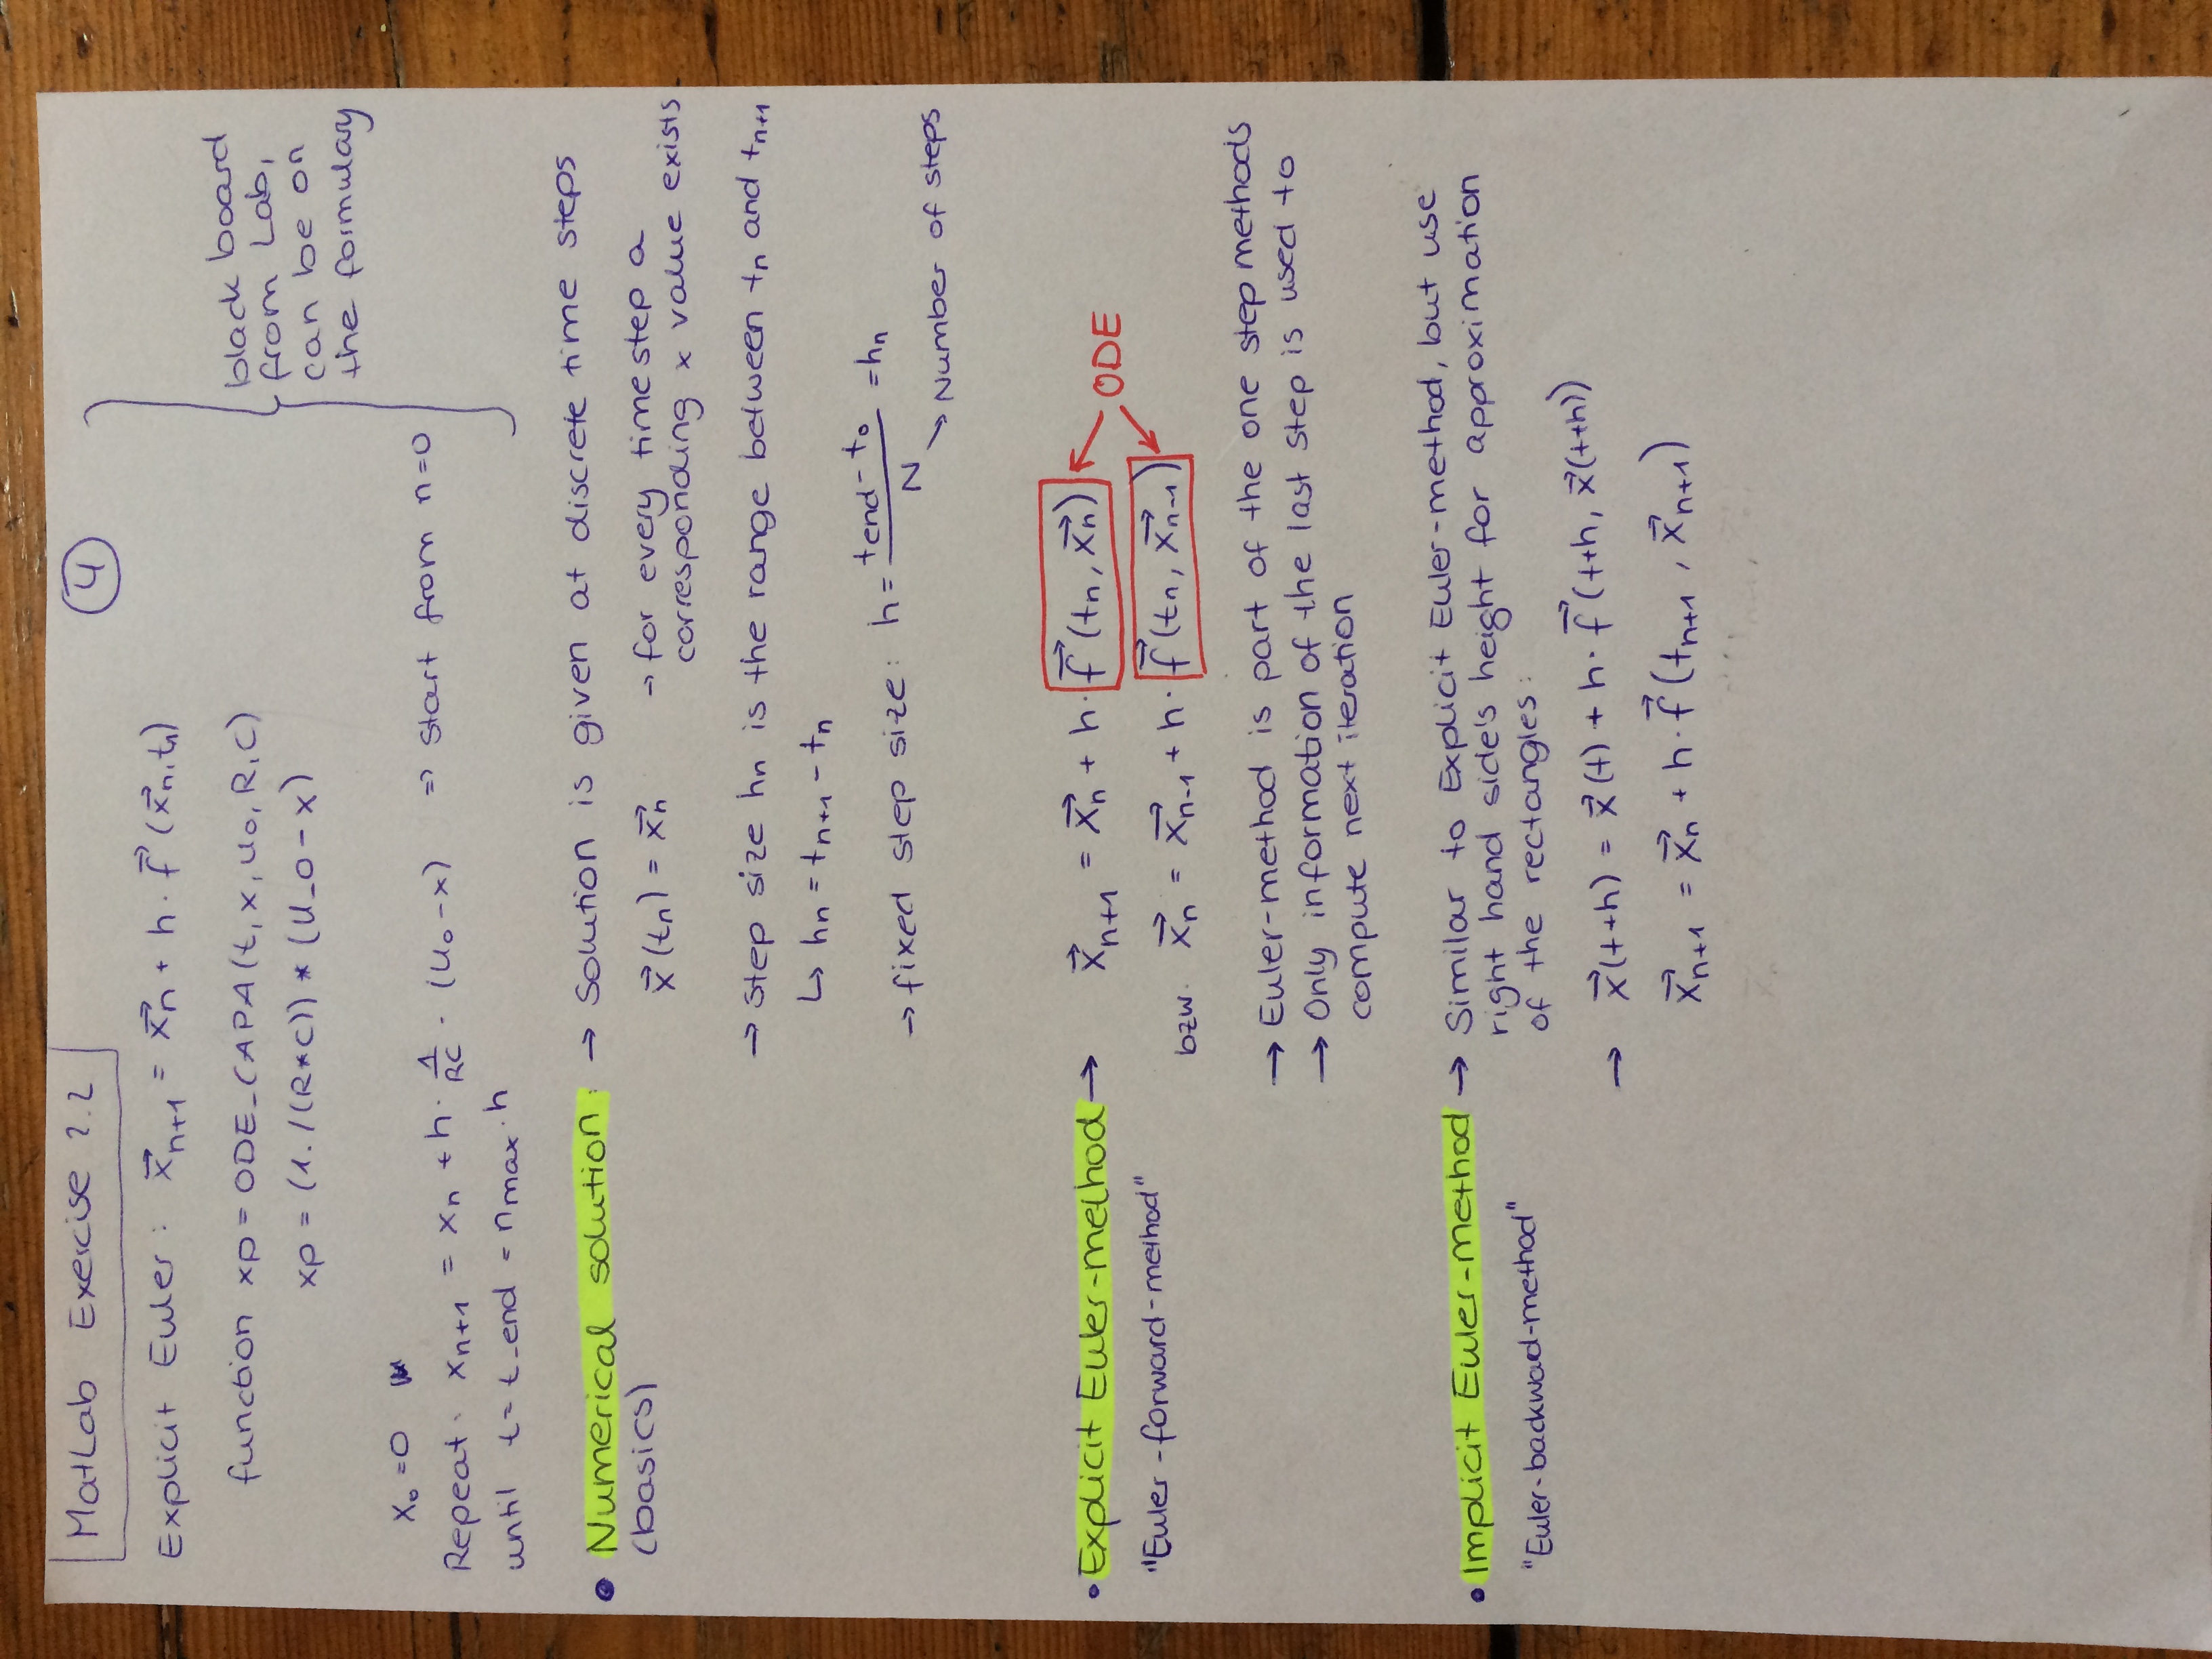 MatLab Exercise 2.2
4
Explicit Euler: x⃗ₙ₊₁ = x⃗ₙ + h · f⃗ (x⃗ₙ, tₙ)
function xp = ODE_CAPA(t, x, u₀, R, C)
xp = (1./(R*C)) * (U_0 - x)
black board
from Lab,
can be on
the formulary
x₀ = 0
Repeat: xₙ₊₁ = xₙ + h · 1/RC · (u₀ - x) => start from n=0
until t = t_end = nmax · h
• Numerical solution: → Solution is given at discrete time steps
(basics)
x⃗(tₙ) = x⃗ₙ → for every timestep a
corresponding x value exists
→ step size hₙ is the range between tₙ and tₙ₊₁
↳ hₙ = tₙ₊₁ - tₙ
→ fixed step size: h = (tend - t₀)/N = hₙ
↘ Number of steps
• Explicit Euler-method → x⃗ₙ₊₁ = x⃗ₙ + h · f⃗(tₙ, x⃗ₙ)
ODE
"Euler-forward-method"
bzw. x⃗ₙ = x⃗ₙ₋₁ + h · f⃗(tₙ, x⃗ₙ₋₁)
→ Euler-method is part of the one step methods
→ Only information of the last step is used to
compute next iteration
• Implicit Euler-method → Similar to Explicit Euler-method, but use
right hand side's height for approximation
"Euler-backward-method"
of the rectangles:
→ x⃗(t+h) = x⃗(t) + h · f⃗(t+h, x⃗(t+h))
x⃗ₙ₊₁ = x⃗ₙ + h · f⃗(tₙ₊₁, x⃗ₙ₊₁)